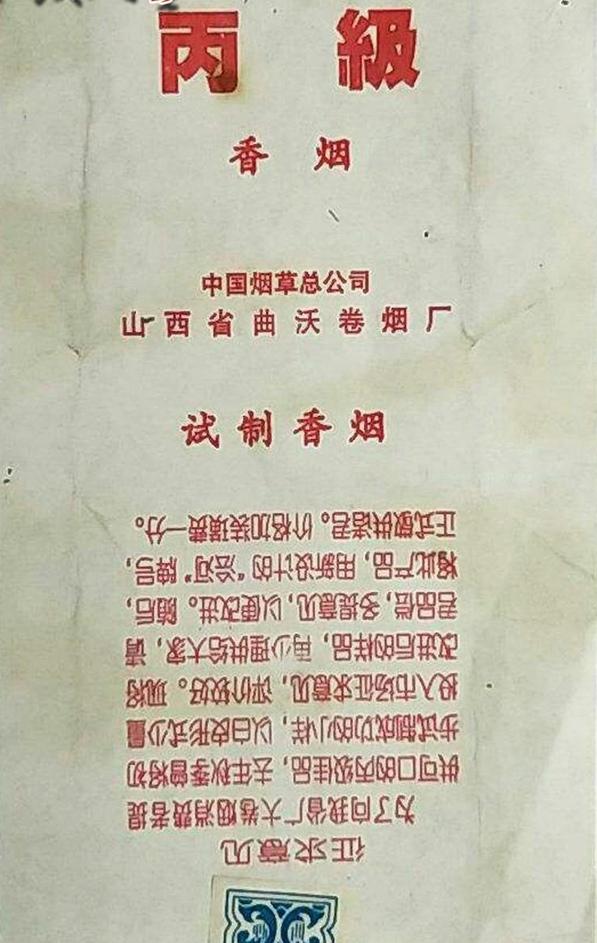 丙級
香烟
中国烟草总公司
山西省曲沃卷烟厂
试制香烟
征求意见
为了向我省广大卷烟消费者提
供可口的丙级佳品，去年秋季曾将初
步试制成功的小样，以白皮形式少量
投入市场征求意见，评价较好。现将
改进后的样品，再少理供给大家，请
君品尝，多提意见，以便改进。随后，
将此产品，用新设计的“浍河”牌号，
正式敬供诸君。价格加装璜费一分。